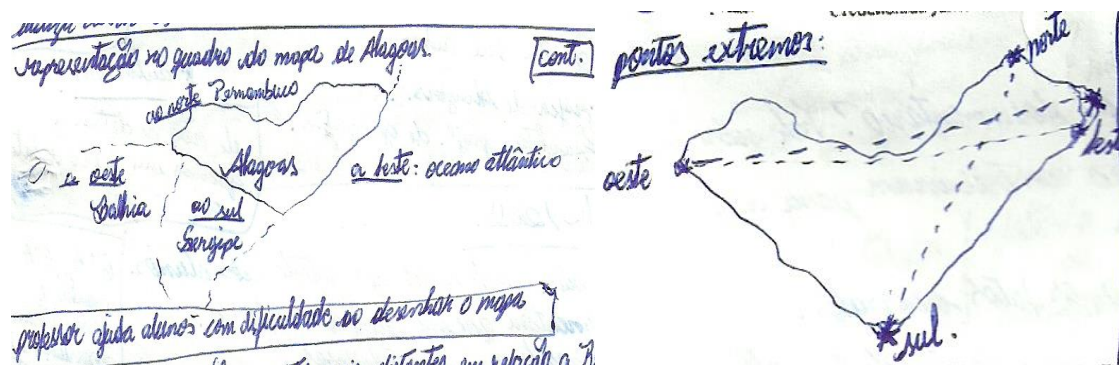 representação no quadro do mapa de Alagoas.
cont.
ao norte Pernambuco
Alagoas
a leste: oceano atlântico
a oeste
Bahia
ao sul
Sergipe
professor ajuda alunos com dificuldade ao desenhar o mapa
distantes em relação a
pontos extremos:
norte
leste
oeste
sul.